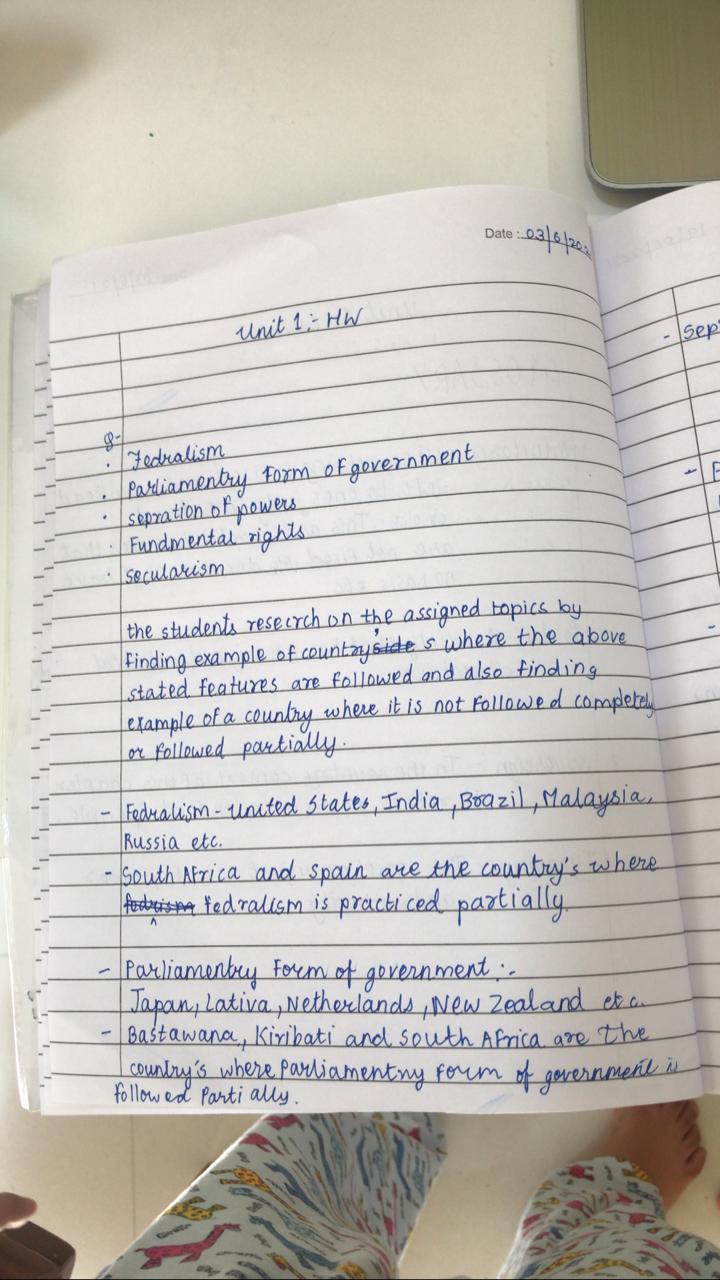 Date :- 03/6/202
Unit 1:- HW
Q-
· Fedralism
· Parliamentry form of government
· sepration of powers
· Fundmental rights
· secularism
the students reseCrch on the assigned topics by
finding example of country's where the above
stated features are followed and also finding
example of a country where it is not followed completely
or followed partially.
- Fedralism - united States, India, Brazil, Malaysia,
Russia etc.
- South Africa and spain are the country's where
fedralism is practiced partially.
- Parliamentry Form of government :-
Japan, Lativa, Netherlands, New Zealand etc.
- Bastawana, Kiribati and South Africa are the
country's where Parliamentry form of government is
followed Partially.
- sep